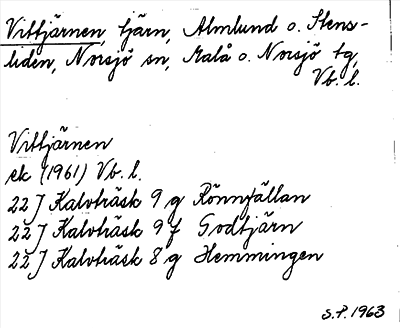 Vittjärnen, tjärn, Almlund o. Stens-
liden, Norsjö sn, Malå o. Norsjö tg,
Vb. l.
Vittjärnen
ek (1961) Vb. l.
22 J Kalvträsk 9 g Rönnfällan
22 J Kalvträsk 9 f Godtjärn
22 J Kalvträsk 8 g Hemmingen
S.P. 1963